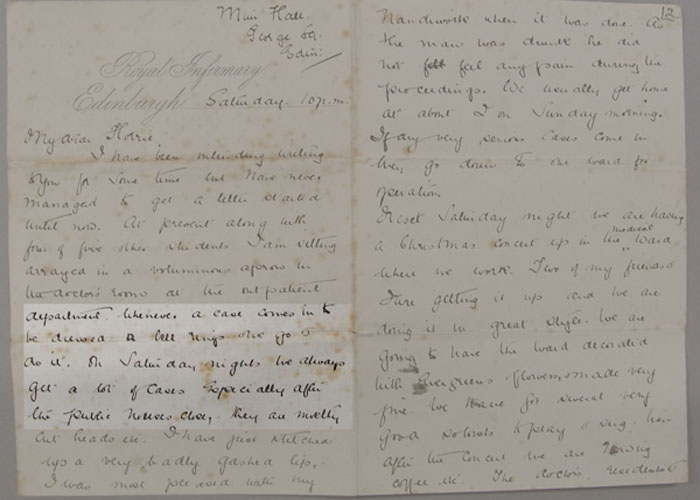 Muir Hall.
George Sq.
Edin:
Royal Infirmary
Edinburgh Saturday. 10 p.m.
My dear Florrie
I have been intending writing
to you for some time but have never
managed to get a letter started
until now. At present along with
four of five other students I am sitting
arrayed in a voluminous apron in
the doctors room at the out patient
department whenever a case comes in to
be dressed a bell rings one go &
do it. On Saturday nights we always
get a lot of cases especially after
the public houses close, they are mostly
cut heads etc. I have just stitched
up a very badly gashed lip,.
I was most pleased with my
12.
handiwork when it was done. As
the man was drunk he did
not feel any pain during the
proceedings. We usually get home
at about 1 on Sunday morning.
If any very serious cases come in
they go down to our ward for
operation
Next Saturday night we are having
a Christmas concert up in the medical ward
where we work. Two of my friends &
I are getting it up and we are
doing it in great style. We are
going to have the ward decorated
with evergreens flowers & made very
fine. We have for several very
good soloists to play & sing. then
after the concert we are having
coffee etc. The doctors, residents